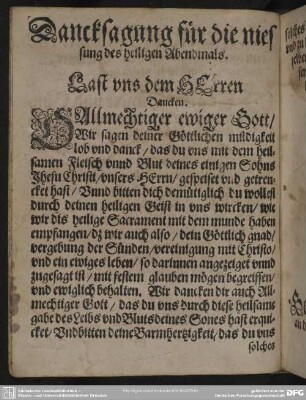 Dancksagung für die nies
sung des heiligen Abendmals.
Last vns dem HErren
Dancken.
O Allmechtiger ewiger Gott/
Wir sagen deiner Göttlichen mildigkeit
lob vnd danck/ das du vns mit dem heil-
samen Fleisch vnnd Blut deines einigen Sohns
Jhesu Christi/ vnsers HErrn/ gespeiset vnd getren-
cket hast/ Vnnd bitten dich demüttiglich du wollest
durch deinen heiligen Geist in vns wircken/ wie
wir dis heilige Sacrament mit dem munde haben
empfangen/ dz wir auch also/ dein Göttlich gnad/
vergebung der Sünden/ vereinigung mit Christo/
vnd ein ewiges leben/ so darinnen angezeiget vnnd
zugesagt ist/ mit festem glauben mögen begreiffen/
vnd ewiglich behalten. Wir dancken dir auch All-
mechtiger Gott/ das du vns durch diese heilsame
gabe des Leibs vnd Bluts deines Sones hast erqui-
cket/ Vnd bitten deine Barmhertzigkeit/ das du vns
solches